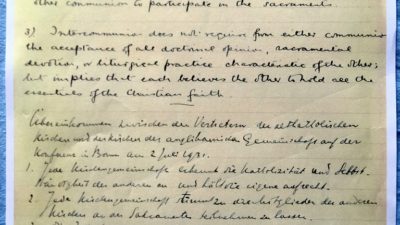 other communion to participate in the sacraments.
3) Intercommunion does not require from either communion
the acceptance of all doctrinal opinion, sacramental
devotion, or liturgical practice characteristic of the other;
but implies that each believes the other to hold all the
essentials of the Christian faith.
Übereinkommen zwischen den Vertretern der altkatholischen
Kirchen und der Kirchen der anglikanischen Gemeinschaft auf der
Konferenz in Bonn am 2 Juli 1931.
1. Jede Kirchengemeinschaft erkennt die Katholizität und Selbst-
ständigkeit der anderen an und hält die eigene aufrecht.
2. Jede Kirchengemeinschaft stimmt zu die Mitglieder der anderen
Kirchen an den Sakramenten teilnehmen zu lassen.